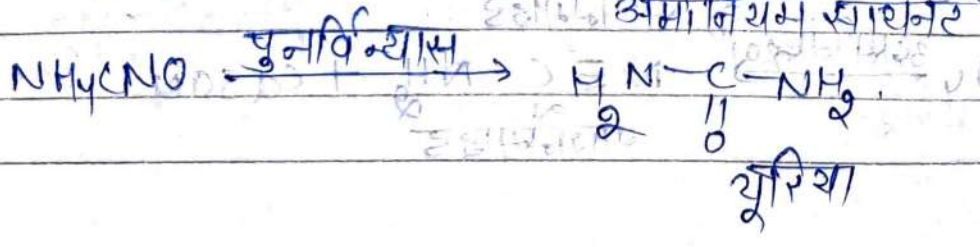 अमोनियम सायनेट
NH4CNO पुनर्विन्यास → H2N-C-NH2
||
O
यूरिया